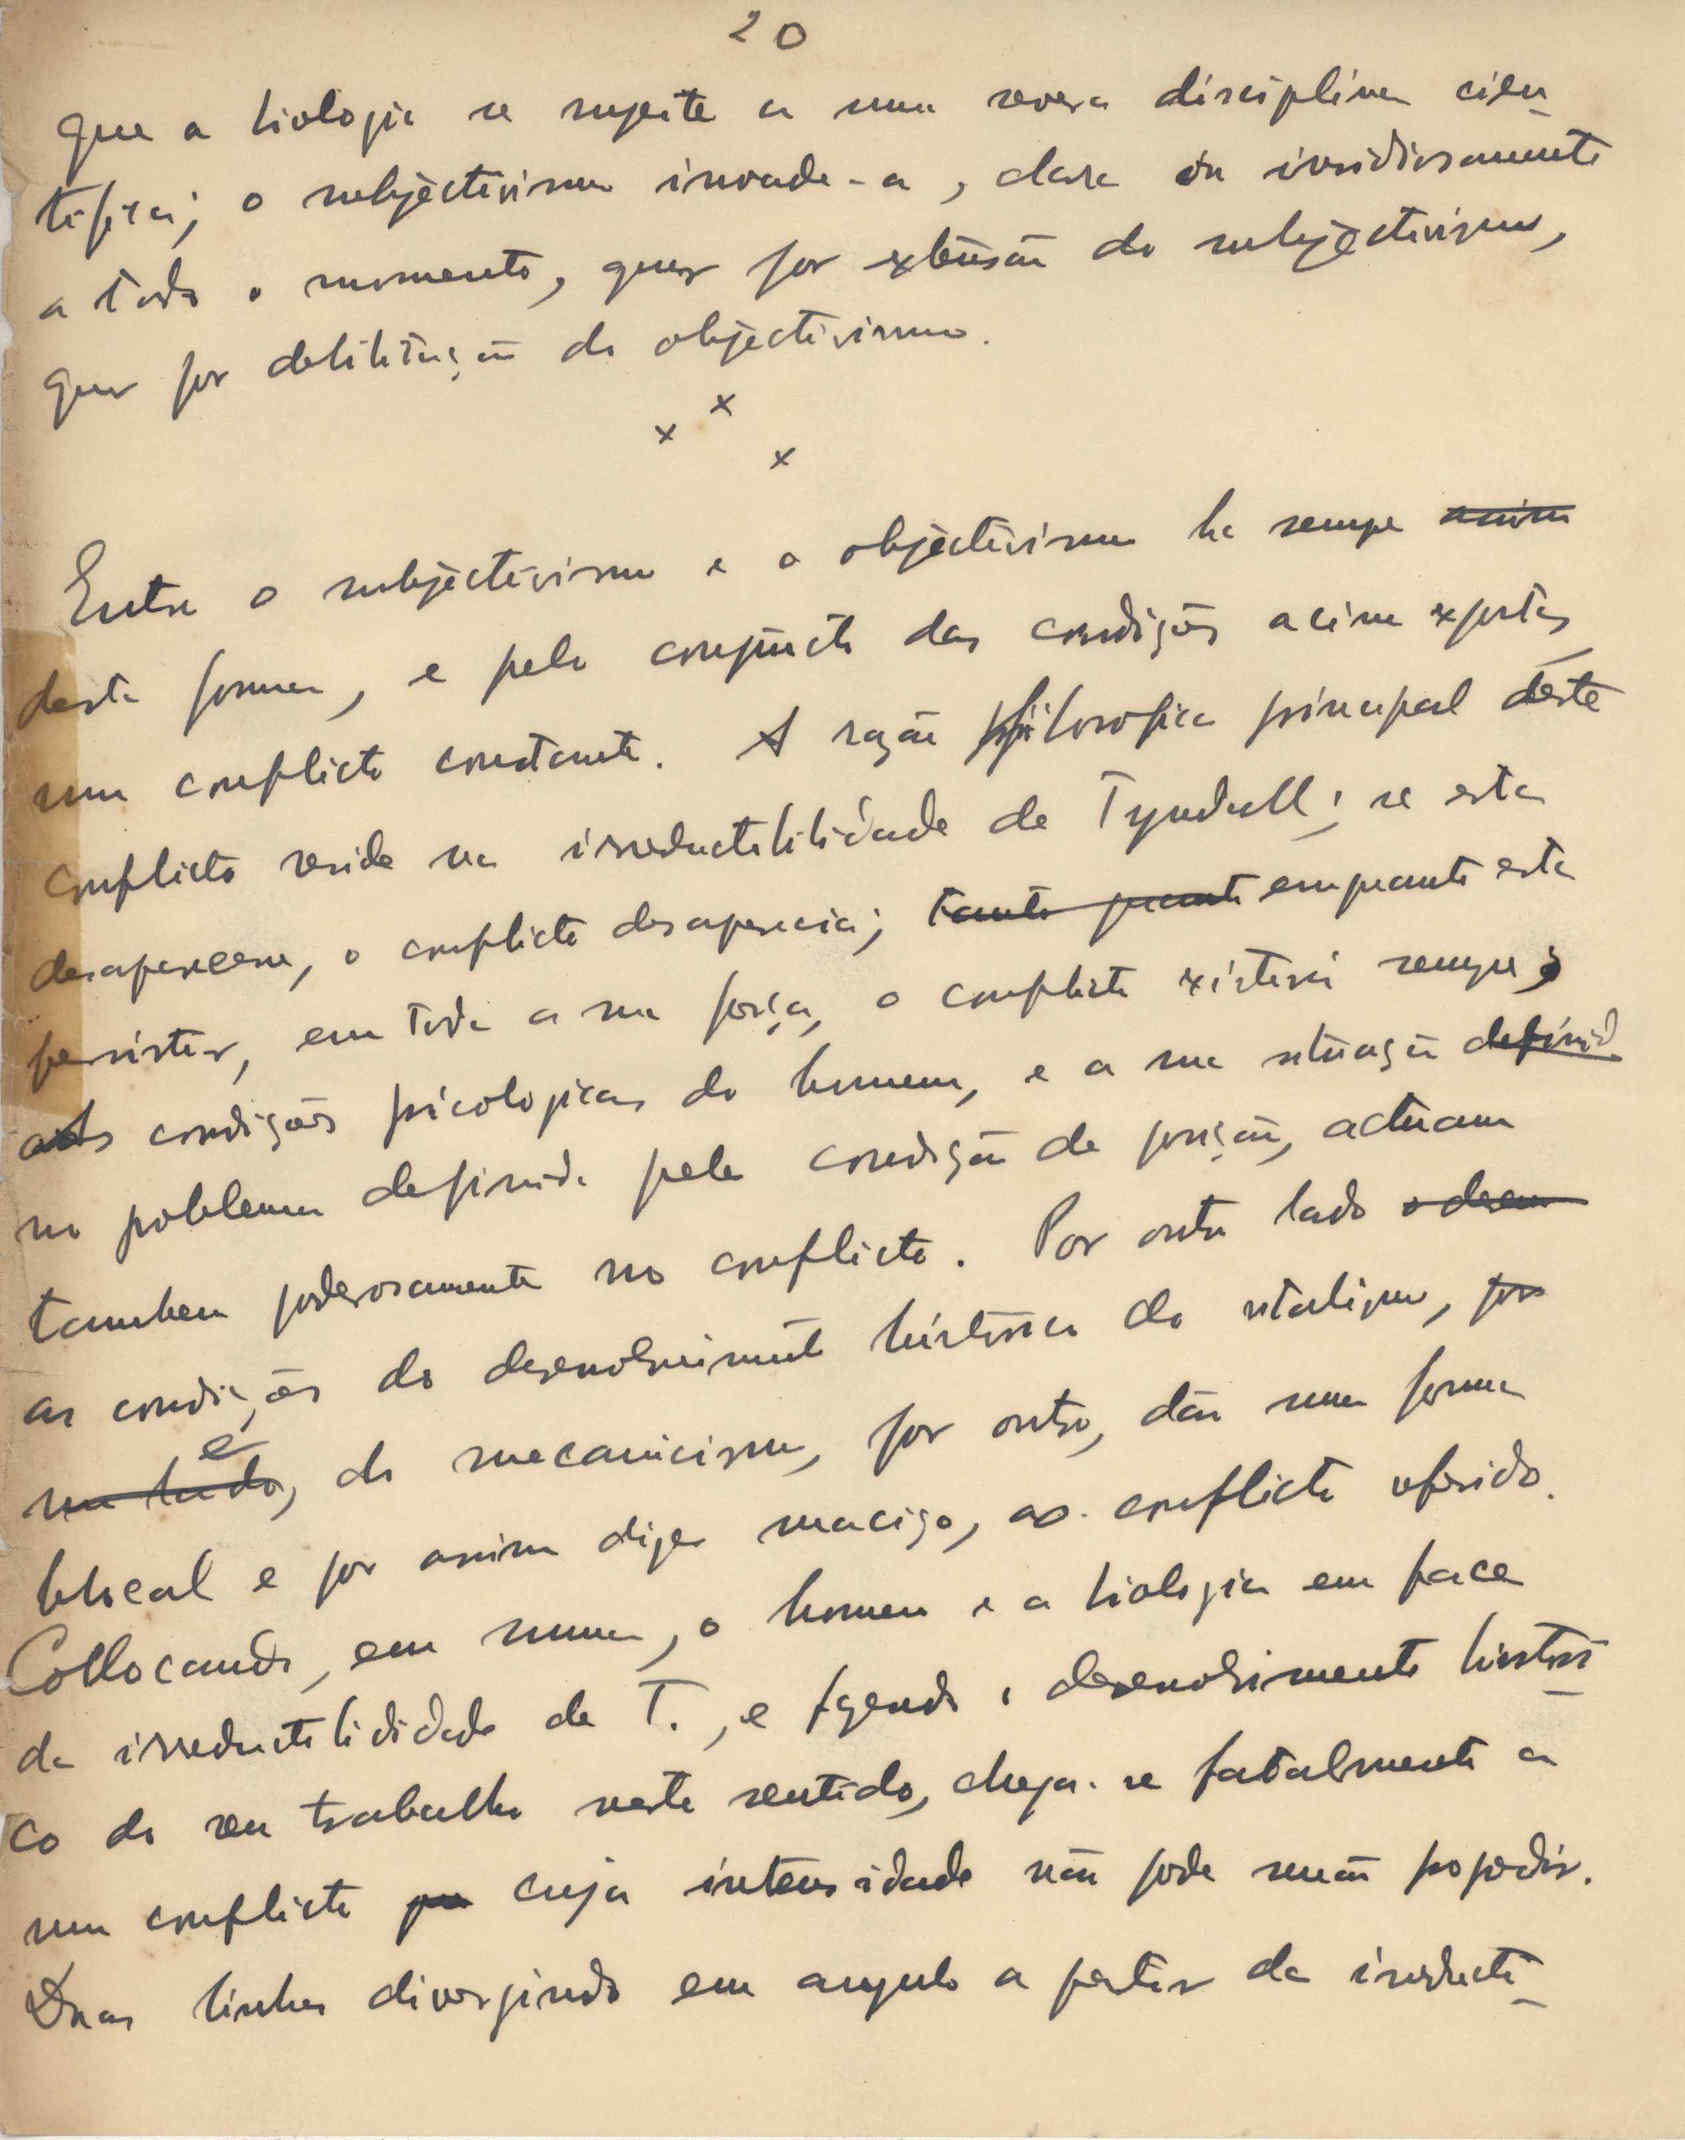 20
que a biologia se sujeite a uma severa disciplina cien_
tifica; o subjectivismo invade-a, clara ou insidiosamente
a todo o momento, quer por extensão do subjectivismo,
quer por debilitação do objectivismo.
x x x
Entre o subjectivismo e o objectivismo ha sempre assim
desta forma, e pelo conjuncto das condições acima expostas
um conflicto constante. A razão filosofica principal deste
conflicto reside na irreductibilidade de Tyndall; se esta
desaparecesse, o conflicto desapareceria; tanto quanto emquanto esta
persistir, em toda a sua força, o conflicto existirá sempre;
as condições psicologicas do homem, e a sua situação definid
no problema definida pela condição de posição, actuam
tambem poderosamente no conflicto. Por outro lado o desen
as condições do desenvolvimento historico do vitalismo, por
um lado, e do mecanicismo, por outro, dão uma forma
blocal e por assim dizer maciça, ao conflicto referido.
Collocando, em suma, o homem e a biologia em face
da irreductibilidade de T., e fazendo o desenvolvimento histori_
co do seu trabalho neste sentido, chega-se fatalmente a
um conflicto cuja intensidade não pode senão progredir.
Duas linhas divergindo em angulo a partir da irreducti_